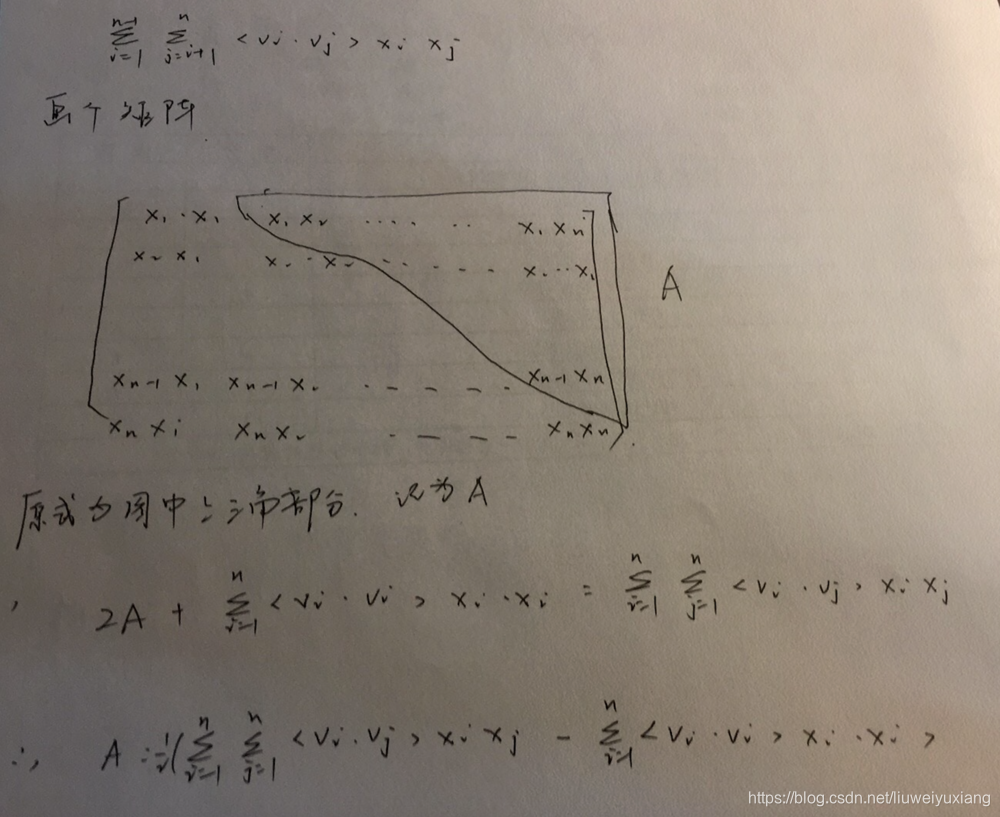 n-1 Σ i=1 n Σ j=i+1 < vi · vj > xi xj
画个矩阵
x1 · x1 x1 x2 ···· ·· x1 xn
x2 x1 x2 · x2 - - - -
xn-1 x1 xn-1 x2 · - - - - xn-1 xn
xn x1 xn x2 · - - - xn xn
A
原式为图中上三角部分. 设为A
2A + n Σ i=1 < vi · vi > xi · xi = n Σ i=1 n Σ j=1 < vi · vj > xi xj
∴ A = 1/2 ( n Σ i=1 n Σ j=1 < vi · vj > xi xj - n Σ i=1 < vi · vi > xi · xi >
https://blog.csdn.net/liuweiyuxiang